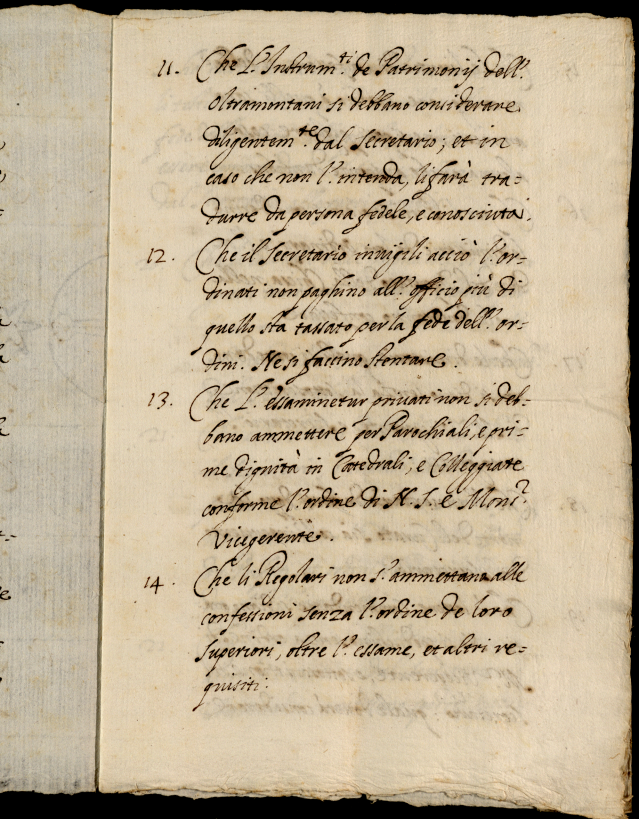 11. Che l'Instrum.ti de Patrimonij dell'
oltramontani si debbano considerare
diligentem.te dal Secretario; et in
caso che non l'intenda, li farà tra=
durre da persona fedele, e conosciuta.
12. Che il Secretario invigili acciò l'or=
dinati non paghino all'officio più di
quello sta tassato per la fede dell'or=
dini. Ne si faccino stentare.
13. Che l'essaminetur privati non si deb=
bano ammettere per Parochiali, e pri=
me dignità in Catedrali, e Colleggiate
conforme l'ordine di N. S. e Mons.r
Vicegerente.
14. Che li Regolari non s'ammettano alle
confessioni senza l'ordine de loro
superiori, oltre l'essame, et altri re=
quisiti.